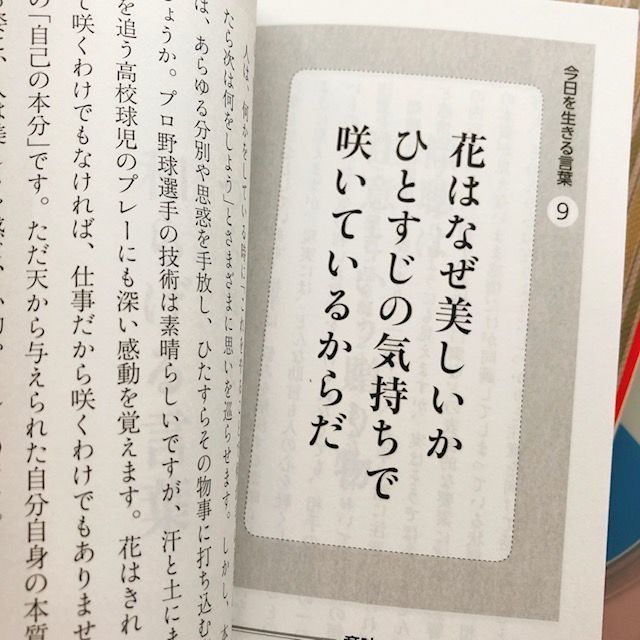 今日を生きる言葉 9
花はなぜ美しいか
ひとすじの気持ちで
咲いているからだ
人は、何かをしている時に「これを
たら次は何をしよう」とさまざまに思いを巡らせます。しかし、本
は、あらゆる分別や思惑を手放し、ひたすらその物事に打ち込む
しょうか。プロ野球選手の技術は素晴らしいですが、汗と土にま
を追う高校球児のプレーにも深い感動を覚えます。花はきれ
て咲くわけでもなければ、仕事だから咲くわけでもありませ
の「自己の本分」です。ただ天から与えられた自分自身の本質